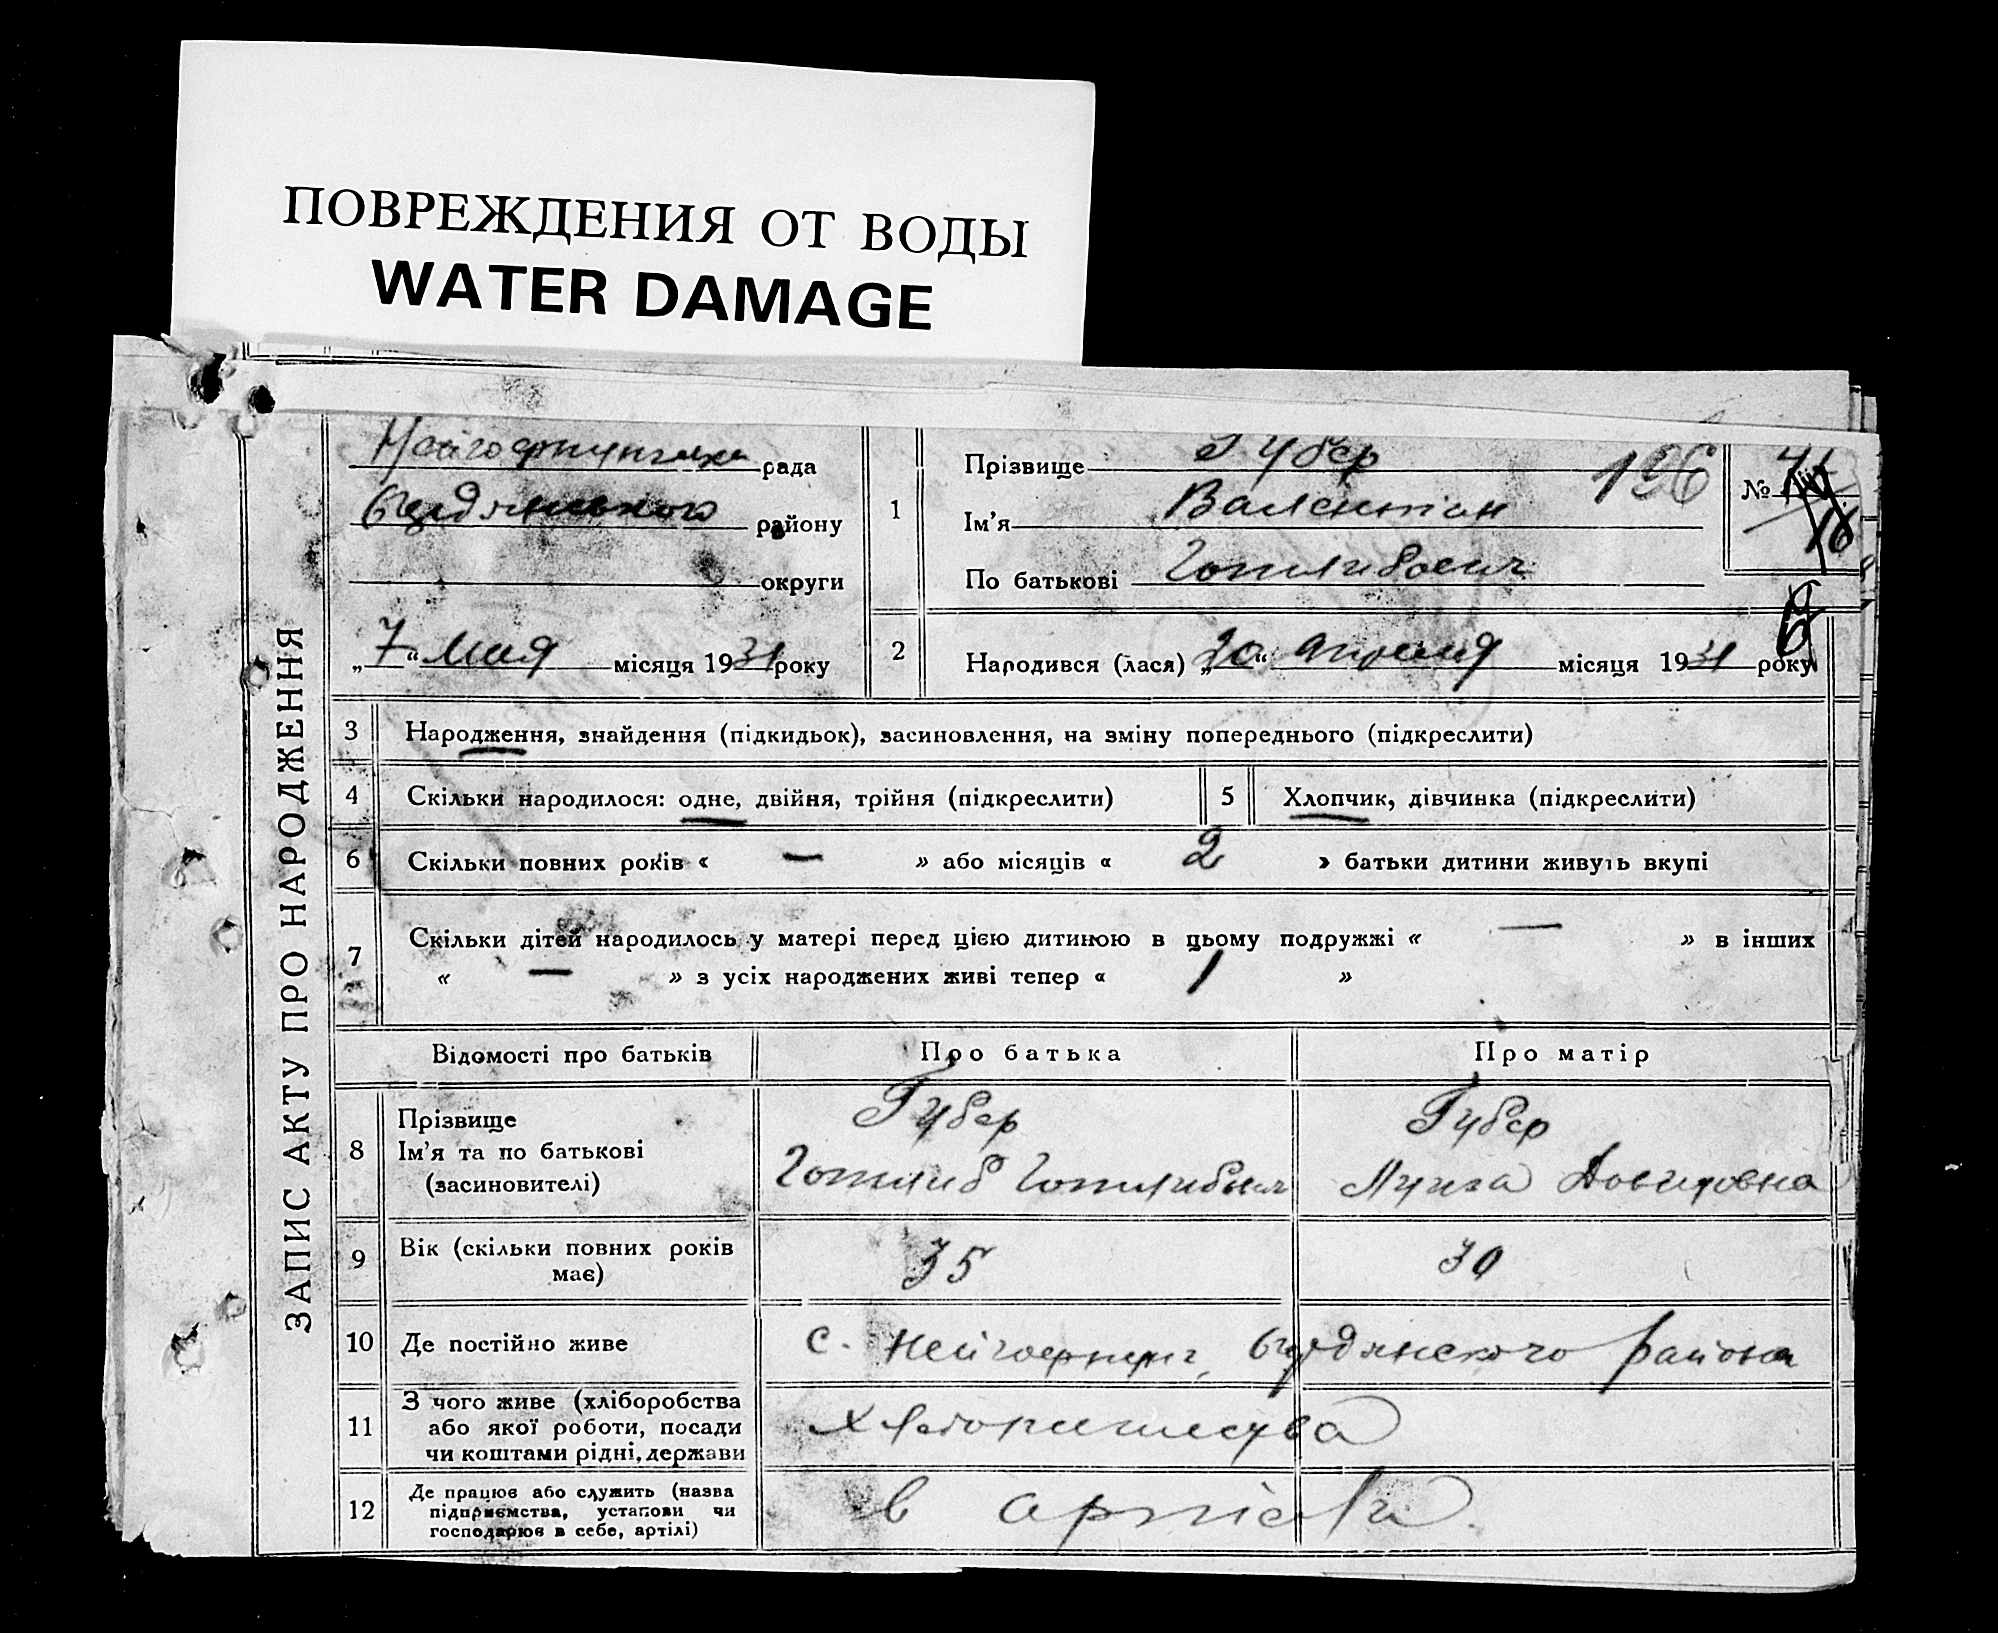 ПОВРЕЖДЕНИЯ ОТ ВОДЫ
WATER DAMAGE
ЗАПИС АКТУ ПРО НАРОДЖЕННЯ
рада
району
округи
„7“ Мая місяця 1931 року
1
Прізвище Губер 196
Ім'я Валентін
По батькові Готлибович
№
16
2 Народився (лася) „20“ Апреля місяця 1931 року
3 Народження, знайдення (підкидьок), засиновлення, на зміну попереднього (підкреслити)
4 Скільки народилося: одне, двійня, трійня (підкреслити)
5 Хлопчик, дівчинка (підкреслити)
6 Скільки повних років « — » або місяців « 2 » батьки дитини живуть вкупі
7 Скільки дітей народилось у матері перед цією дитиною в цьому подружжі « — » в інших
« — » з усіх народжених живі тепер « 1 »
Відомості про батьків Про батька Про матір
8 Прізвище
Ім'я та по батькові
(засиновителі)
Губер
Готлиб Готлибович
Губер
Луиза Довидовна
9 Вік (скільки повних років
має)
35 30
10 Де постійно живе с. района
11 З чого живе (хліборобства
або якої роботи, посади
чи коштами рідні, держави
12 Де працює або служить (назва
підприємства, установи чи
господарює в себе, артілі)
в артілі.